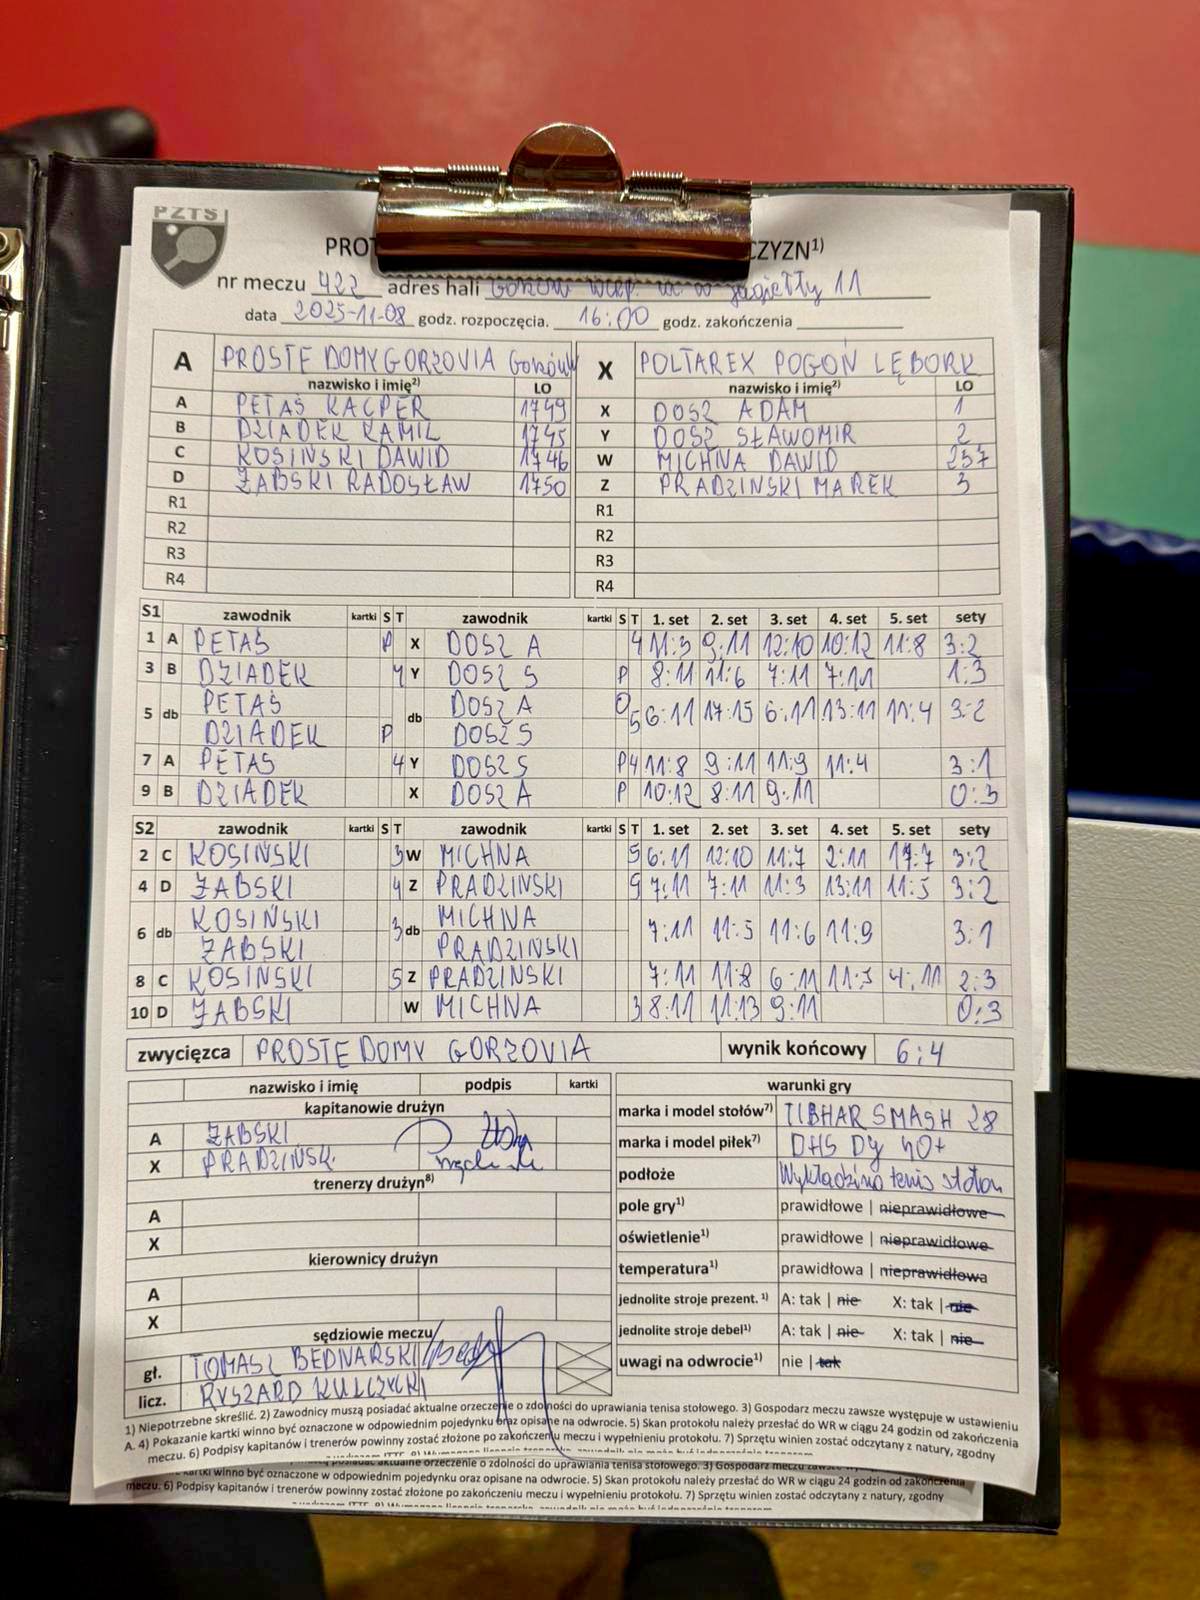 PZTS
PROT CZYZN¹⁾
nr meczu 422 adres hali Gorzów Wlkp. Jagiełły 11
data 2025-11-08 godz. rozpoczęcia. 16:00 godz. zakończenia
A PROSTE DOMY GORZOVIA Gorzów X POLTAREX POGOŃ LĘBORK
nazwisko i imię²⁾ LO nazwisko i imię²⁾ LO
A PETAŚ KACPER 1749 X DOSZ ADAM 1
B DZIADEK KAMIL 1745 Y DOSZ SŁAWOMIR 2
C KOSIŃSKI DAWID 1746 W MICHNA DAWID 257
D ŻABSKI RADOSŁAW 1750 Z PRĄDZINSKI MAREK 3
R1 R1
R2 R2
R3 R3
R4 R4
S1 zawodnik kartki S T zawodnik kartki S T 1. set 2. set 3. set 4. set 5. set sety
1 A PETAŚ P X DOSZ A 4 11:3 9:11 12:10 10:12 11:8 3:2
3 B DZIADEK 4 Y DOSZ S P 8:11 11:6 7:11 7:11 1:3
5 db PETAŚ db DOSZ A O 5 6:11 17:15 6:11 13:11 11:4 3:2
DZIADEK P DOSZ S
7 A PETAS 4 Y DOSZ S P 4 11:8 9:11 11:9 11:4 3:1
9 B DZIADEK X DOSZ A P 10:12 8:11 9:11 0:3
S2 zawodnik kartki S T zawodnik kartki S T 1. set 2. set 3. set 4. set 5. set sety
2 C KOSIŃSKI 3 W MICHNA 5 6:11 12:10 11:7 2:11 :7 3:2
4 D ŻABSKI 4 Z PRĄDZINSKI 7:11 7:11 11:3 13:11 11:5 3:2
6 db KOSIŃSKI 3 db MICHNA 7:11 11:5 11:6 11:9 3:1
ŻABSKI PRĄDZIŃSKI
8 C KOSINSKI 5 Z PRĄDZINSKI 7:11 11:8 6:11 11:3 4:11 2:3
10 D ŻABSKI W MICHNA 3 8:11 11:13 9:11 0:3
zwycięzca PROSTE DOMY GORZOVIA wynik końcowy 6:4
nazwisko i imię podpis kartki warunki gry
kapitanowie drużyn marka i model stołów⁷⁾ TIBHAR SMASH 28
A ŻABSKI marka i model piłek⁷⁾ DHS DJ 40+
X PRĄDZIŃSK.
trenerzy drużyn⁸⁾ podłoże Wykładzina tenis stołow
A pole gry¹⁾ prawidłowe | nieprawidłowe
X oświetlenie¹⁾ prawidłowe | nieprawidłowe
kierownicy drużyn temperatura¹⁾ prawidłowa | nieprawidłowa
A jednolite stroje prezent. ¹⁾ A: tak | nie X: tak | nie
X jednolite stroje debel¹⁾ A: tak | nie X: tak | nie
sędziowie meczu uwagi na odwrocie¹⁾ nie | tak
gł. TOMASZ BEDNARSKI
licz. RYSZARD KULCZYCKI
1) Niepotrzebne skreślić. 2) Zawodnicy muszą posiadać aktualne orzeczenie o zdolności do uprawiania tenisa stołowego. 3) Gospodarz meczu zawsze występuje w ustawieniu
A. 4) Pokazanie kartki winno być oznaczone w odpowiednim pojedynku oraz opisane na odwrocie. 5) Skan protokołu należy przesłać do WR w ciągu 24 godzin od zakończenia
meczu. 6) Podpisy kapitanów i trenerów powinny zostać złożone po zakończeniu meczu i wypełnieniu protokołu. 7) Sprzętu winien zostać odczytany z natury, zgodny
aktualne orzeczenie o zdolności do uprawiania tenisa stołowego. 3) Gospodarz meczu
kartki winno być oznaczone w odpowiednim pojedynku oraz opisane na odwrocie. 5) Skan protokołu należy przesłać do WR w ciągu 24 godzin od zakończenia
meczu. 6) Podpisy kapitanów i trenerów powinny zostać złożone po zakończeniu meczu i wypełnieniu protokołu. 7) Sprzętu winien zostać odczytany z natury, zgodny